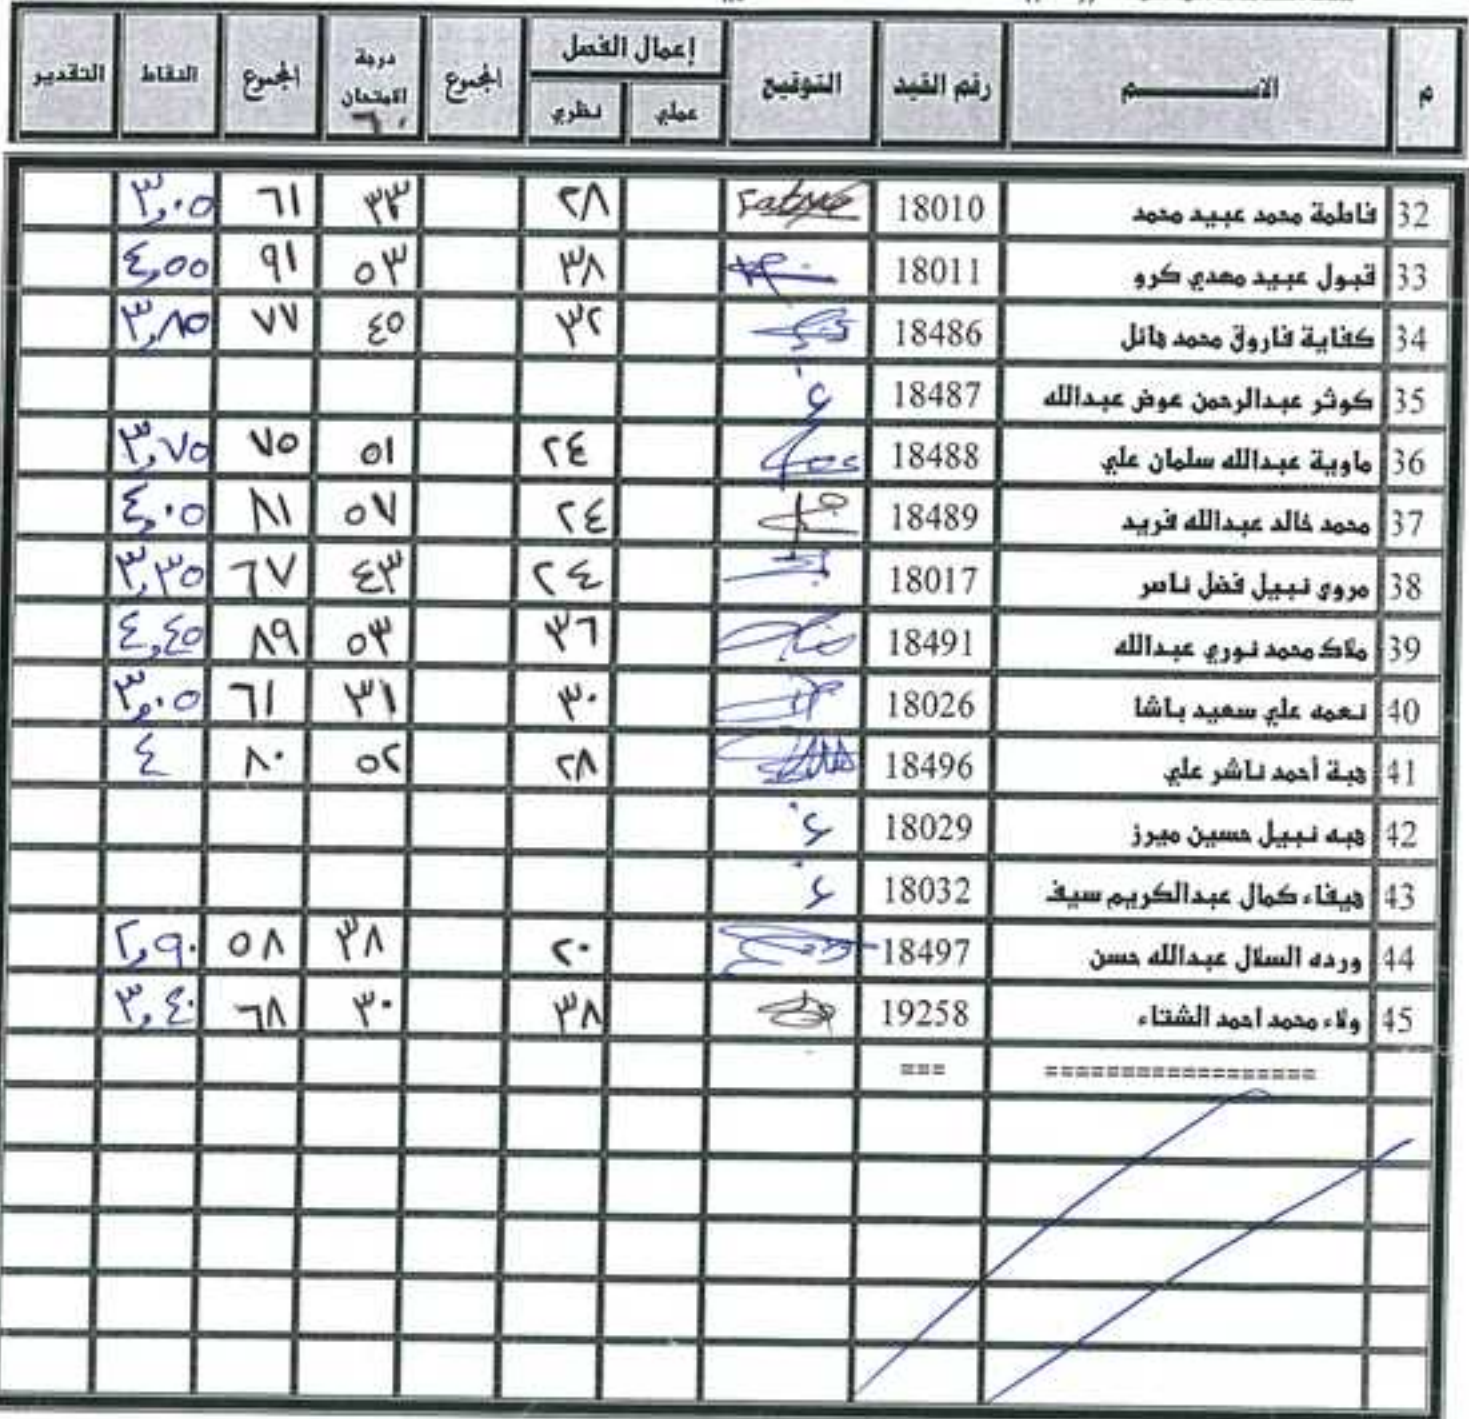 م الاســـــــم رقم القيد التوقيع إعمال الفصل المجموع درجة الامتحان ٦٠ المجموع النقاط التقدير
عملي نظري
32 فاطمة محمد عبيد محمد 18010 ٢٨ ٣٣ ٦١ ٣,٠٥
33 قبول عبيد مهدي كرو 18011 ٣٨ ٥٣ ٩١ ٤,٥٥
34 كفاية فاروق محمد هائل 18486 ٣٢ ٤٥ ٧٧ ٣,٨٥
35 كوثر عبدالرحمن عوض عبدالله 18487 غ
36 ماوية عبدالله سلمان علي 18488 ٢٤ ٥١ ٧٥ ٣,٧٥
37 محمد خالد عبدالله فريد 18489 ٢٤ ٥٧ ٨١ ٤,٠٥
38 مروى نبيل فضل ناصر 18017 ٢٤ ٤٣ ٦٧ ٣,٣٥
39 ملاك محمد نوري عبدالله 18491 ٣٦ ٥٣ ٨٩ ٤,٤٥
40 نعمه علي سعيد باشا 18026 ٣٠ ٣١ ٦١ ٣,٠٥
41 هبة أحمد ناشر علي 18496 ٢٨ ٥٢ ٨٠ ٤
42 هبه نبيل حسين ميرز 18029 غ
43 هيفاء كمال عبدالكريم سيف 18032 غ
44 ورده السلال عبدالله حسن 18497 ٢٠ ٣٨ ٥٨ ٢,٩٠
45 ولاء محمد احمد الشتاء 19258 ٣٨ ٣٠ ٦٨ ٣,٤٠
================== ===